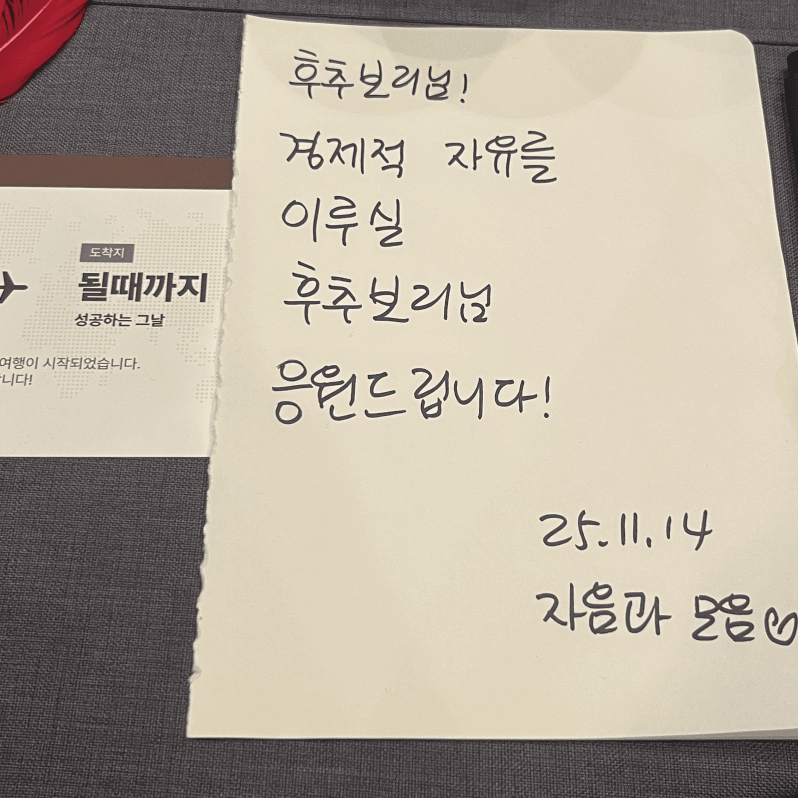 후추보리님!
경제적 자유를
이루실
후추보리님
응원드립니다!
25.11.14
자음과 모음
도착지
될때까지
성공하는 그날
여행이 시작되었습니다.
니다!